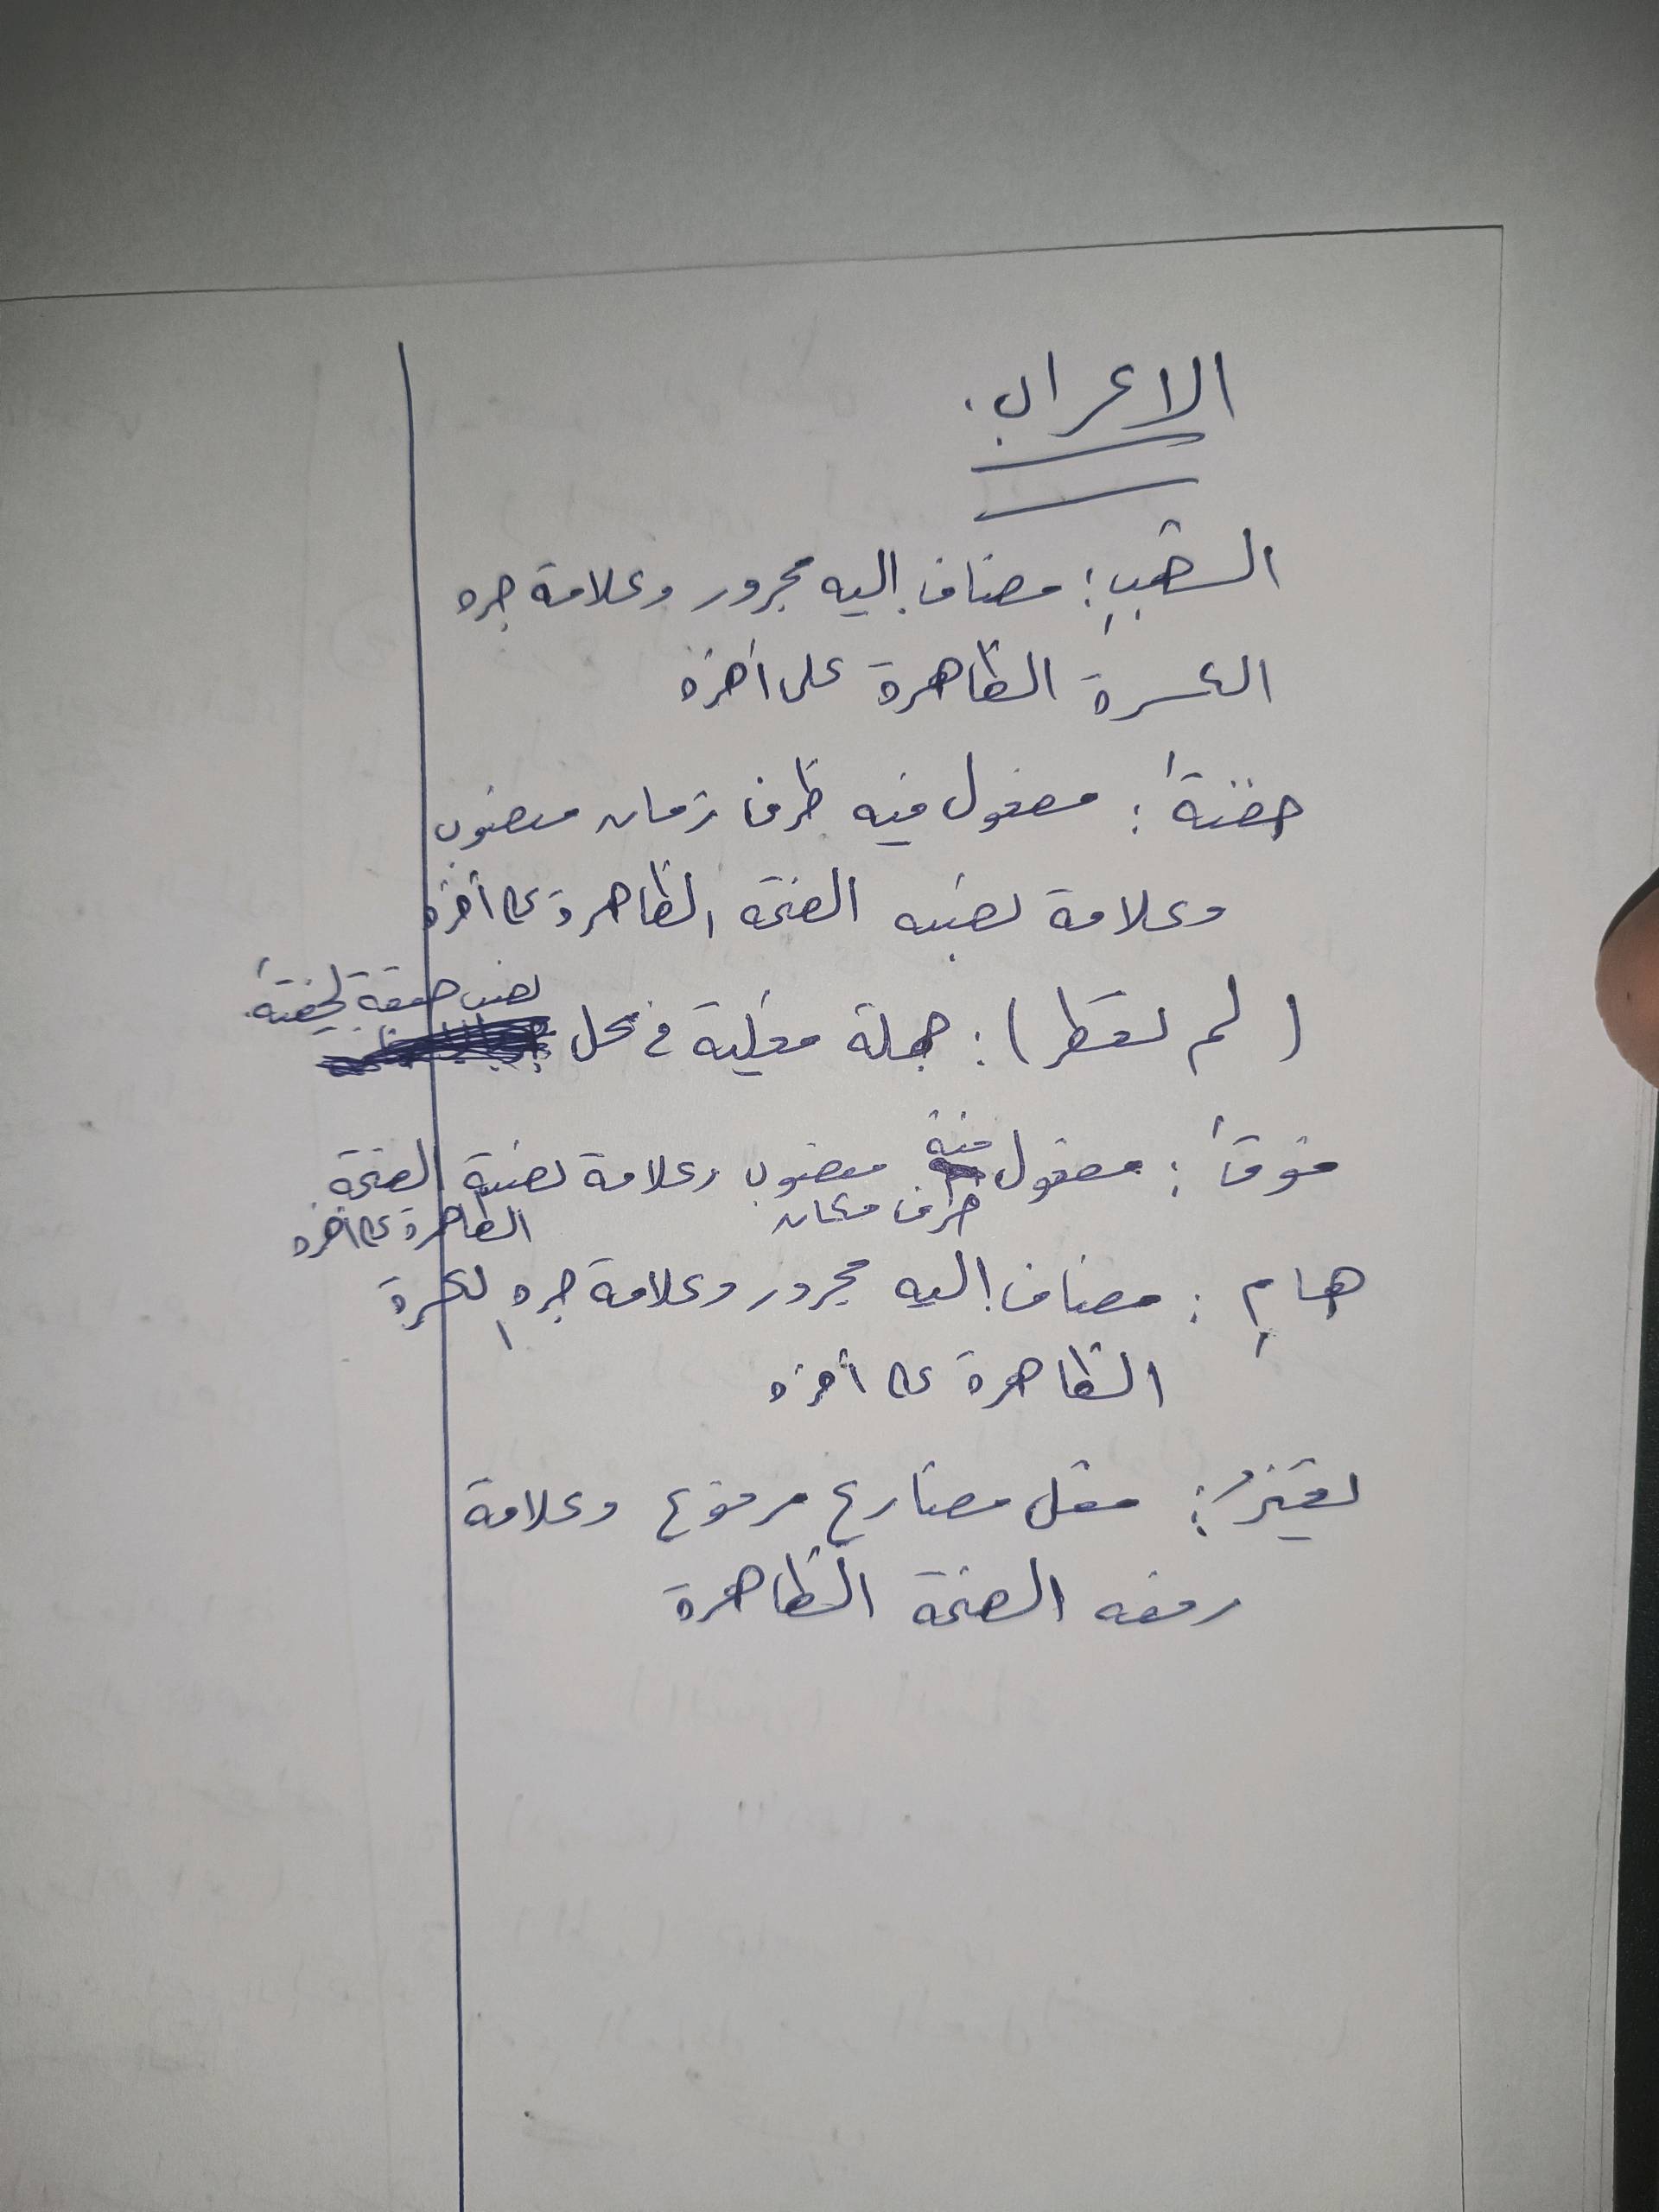 الاعراب.
الشهبِ: مضاف إليه مجرور وعلامة جره
الكسرة الظاهرة على آخره
حفنةً: مفعول فيه ظرف زمان منصوب
وعلامة نصبه الفتحة الظاهرة على آخره
(لم تقطر): جملة فعلية في محل نصب صفة لحفنةً.
فوقَ: مفعول فيه منصوب وعلامة نصبه الفتحة
ظرف مكان الظاهرة على آخره
هامِ: مضاف إليه مجرور وعلامة جره الكسرة
الظاهرة على آخره
فعل مضارع مرفوع وعلامة
رفعه الضمة الظاهرة